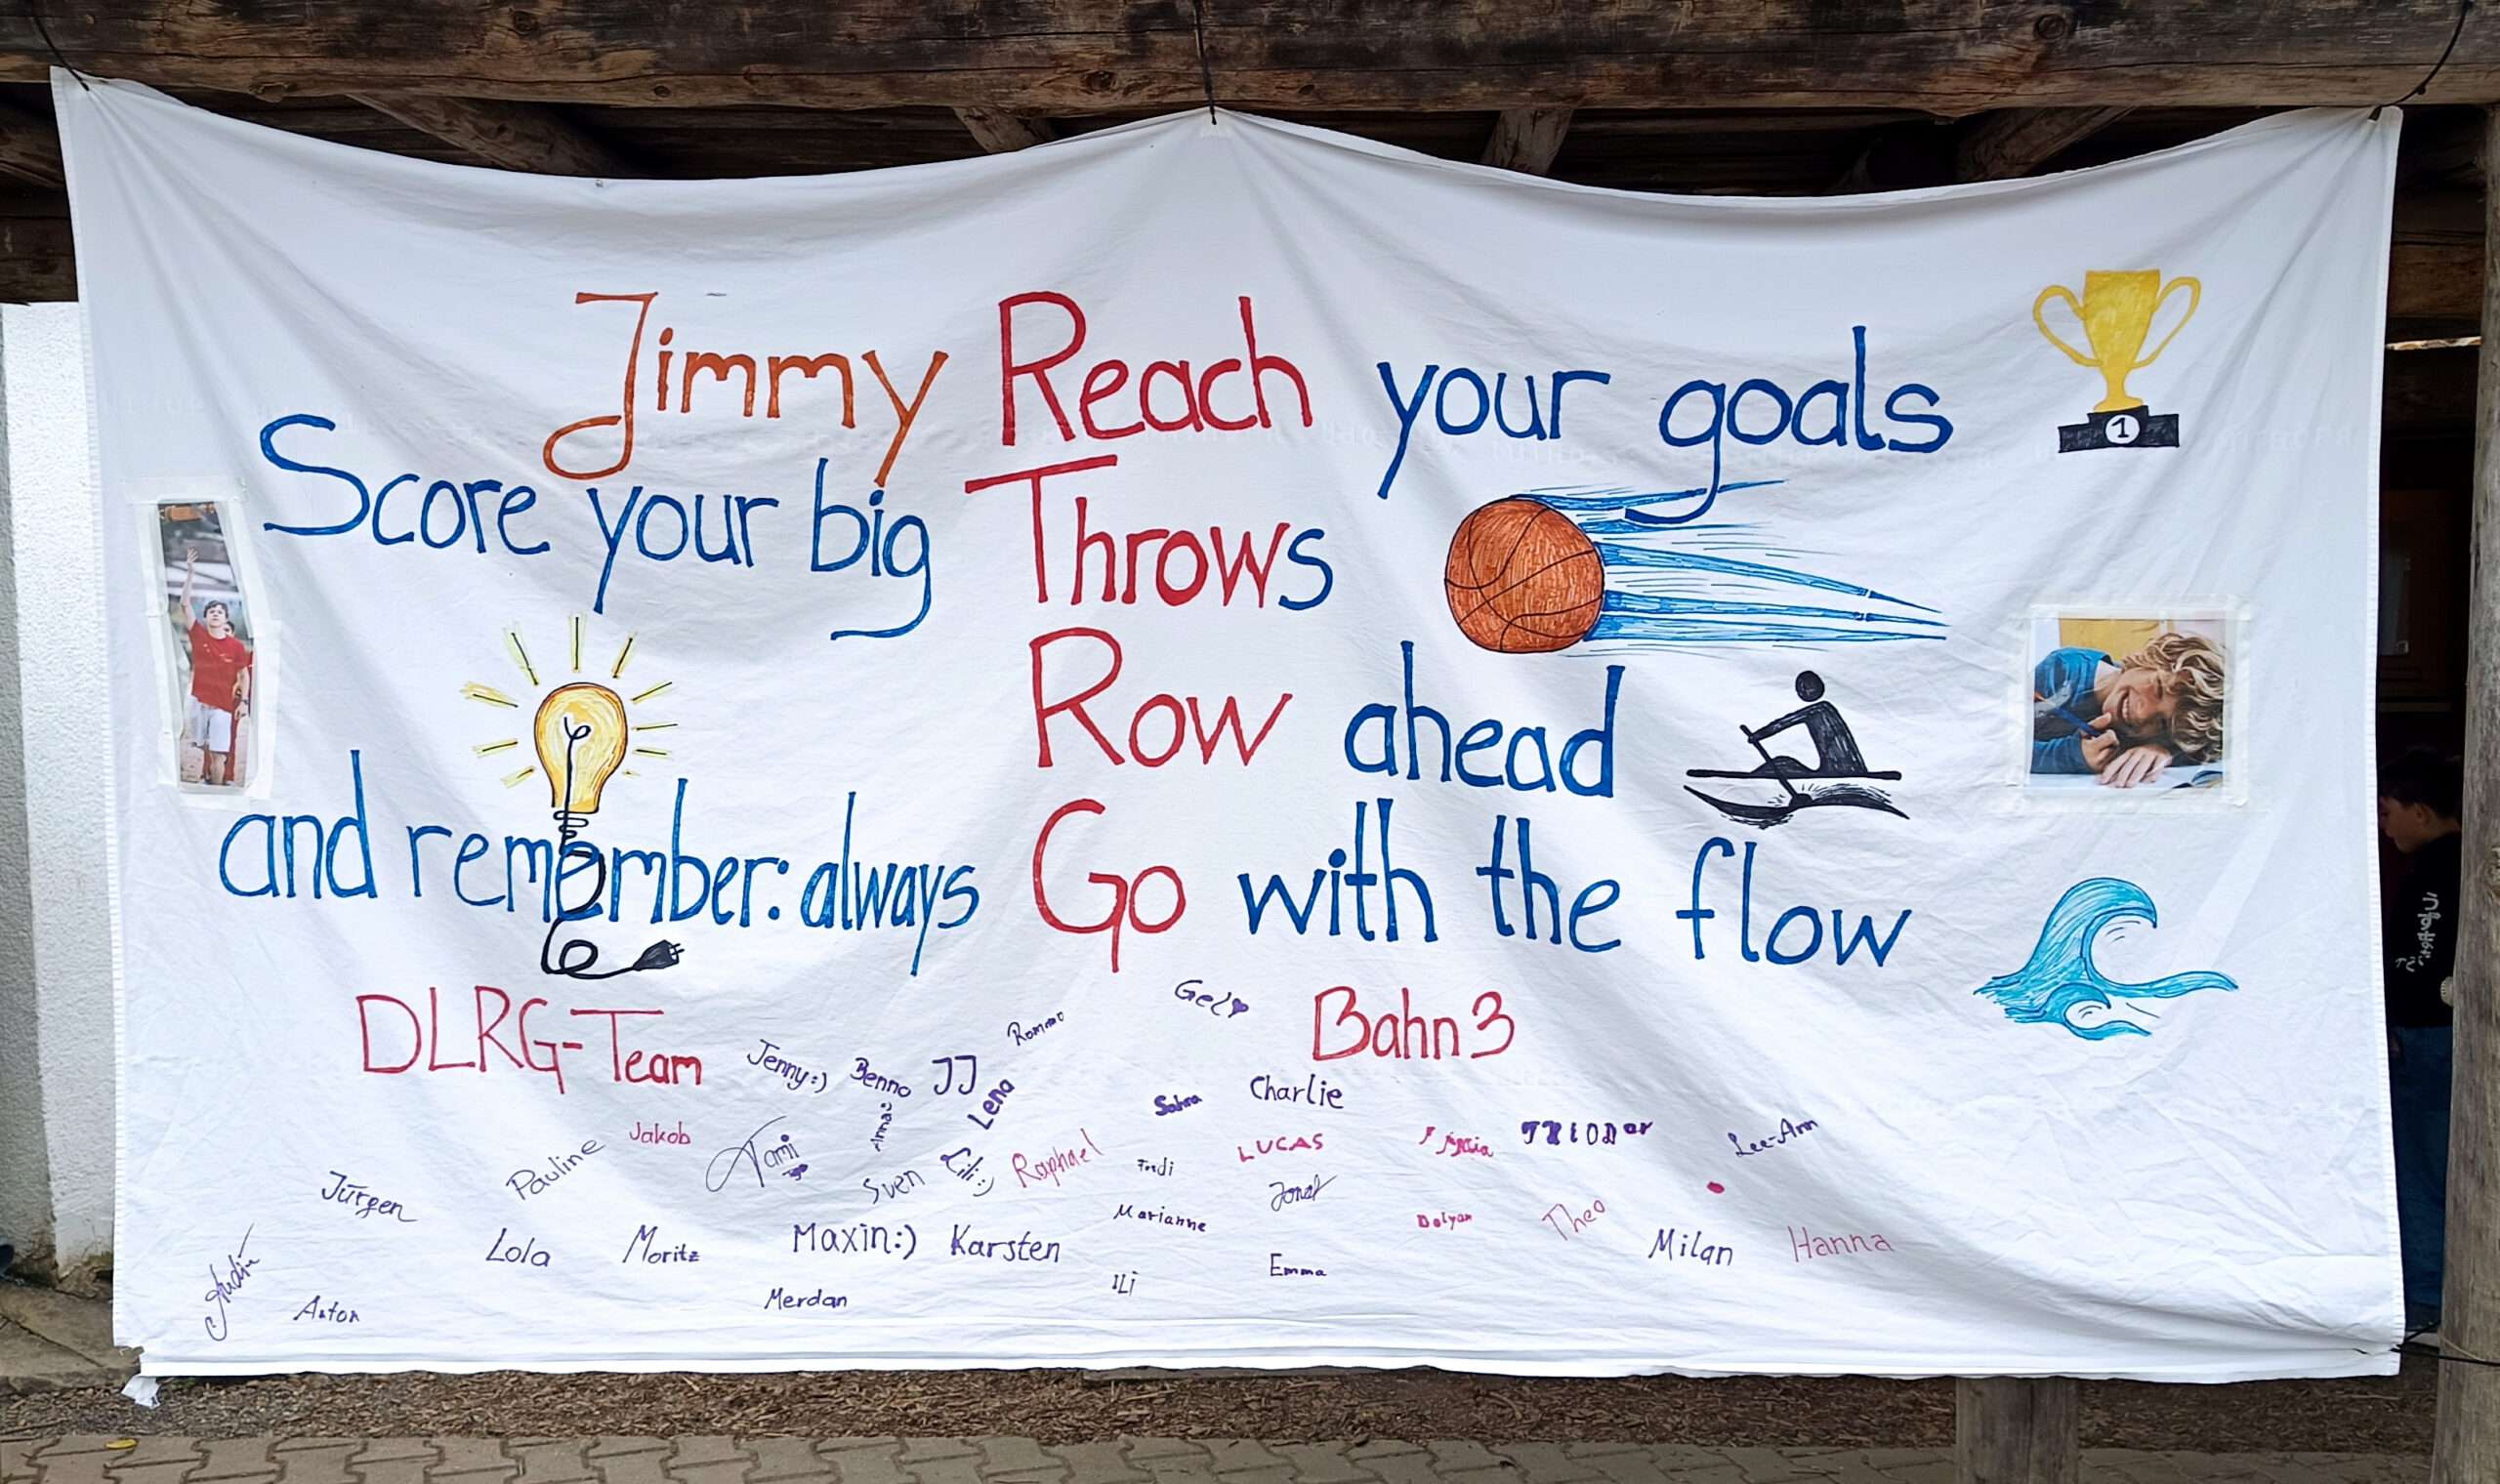 Jimmy Reach your goals
1
Score your big Throws
Row ahead
and remember: always Go with the flow
DLRG-Team
Bahn 3
Gel
Rommo
Jenny:) Benno JJ
Lena
Charlie
Sahra
Jakob
Tami
Pauline
Sven Lili:) Raphael
LUCAS
Lee-Ann
Jürgen
Marianne
Theo
Lola Moritz Maxin:) Karsten
Milan Hanna
Emma
ILi
Merdan